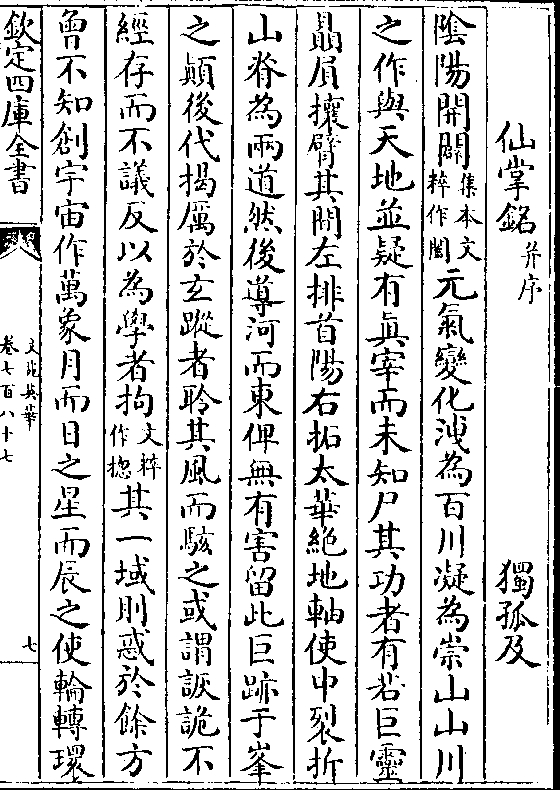 仙掌銘并序 獨孤及
陰陽開闢集本文粹作闔元氣變化洩為百川凝為崇山山川
之作與天地並疑有真宰而未知尸其功者有若巨靈
贔屓攘臂其間左排首陽右拓太華絶地軸使中裂折
山脊為兩道然後導河而東俾無有害留此巨跡于峯
之顛後代揭厲於玄蹤者聆其風而駭之或謂詼詭不
經存而不議反以為學者拘文粹作揔其一域則惑於餘方
曾不知創宇宙作萬象月而日之星而辰之使輪轉環
欽定四庫全書
文苑英華
卷七百八十七
七